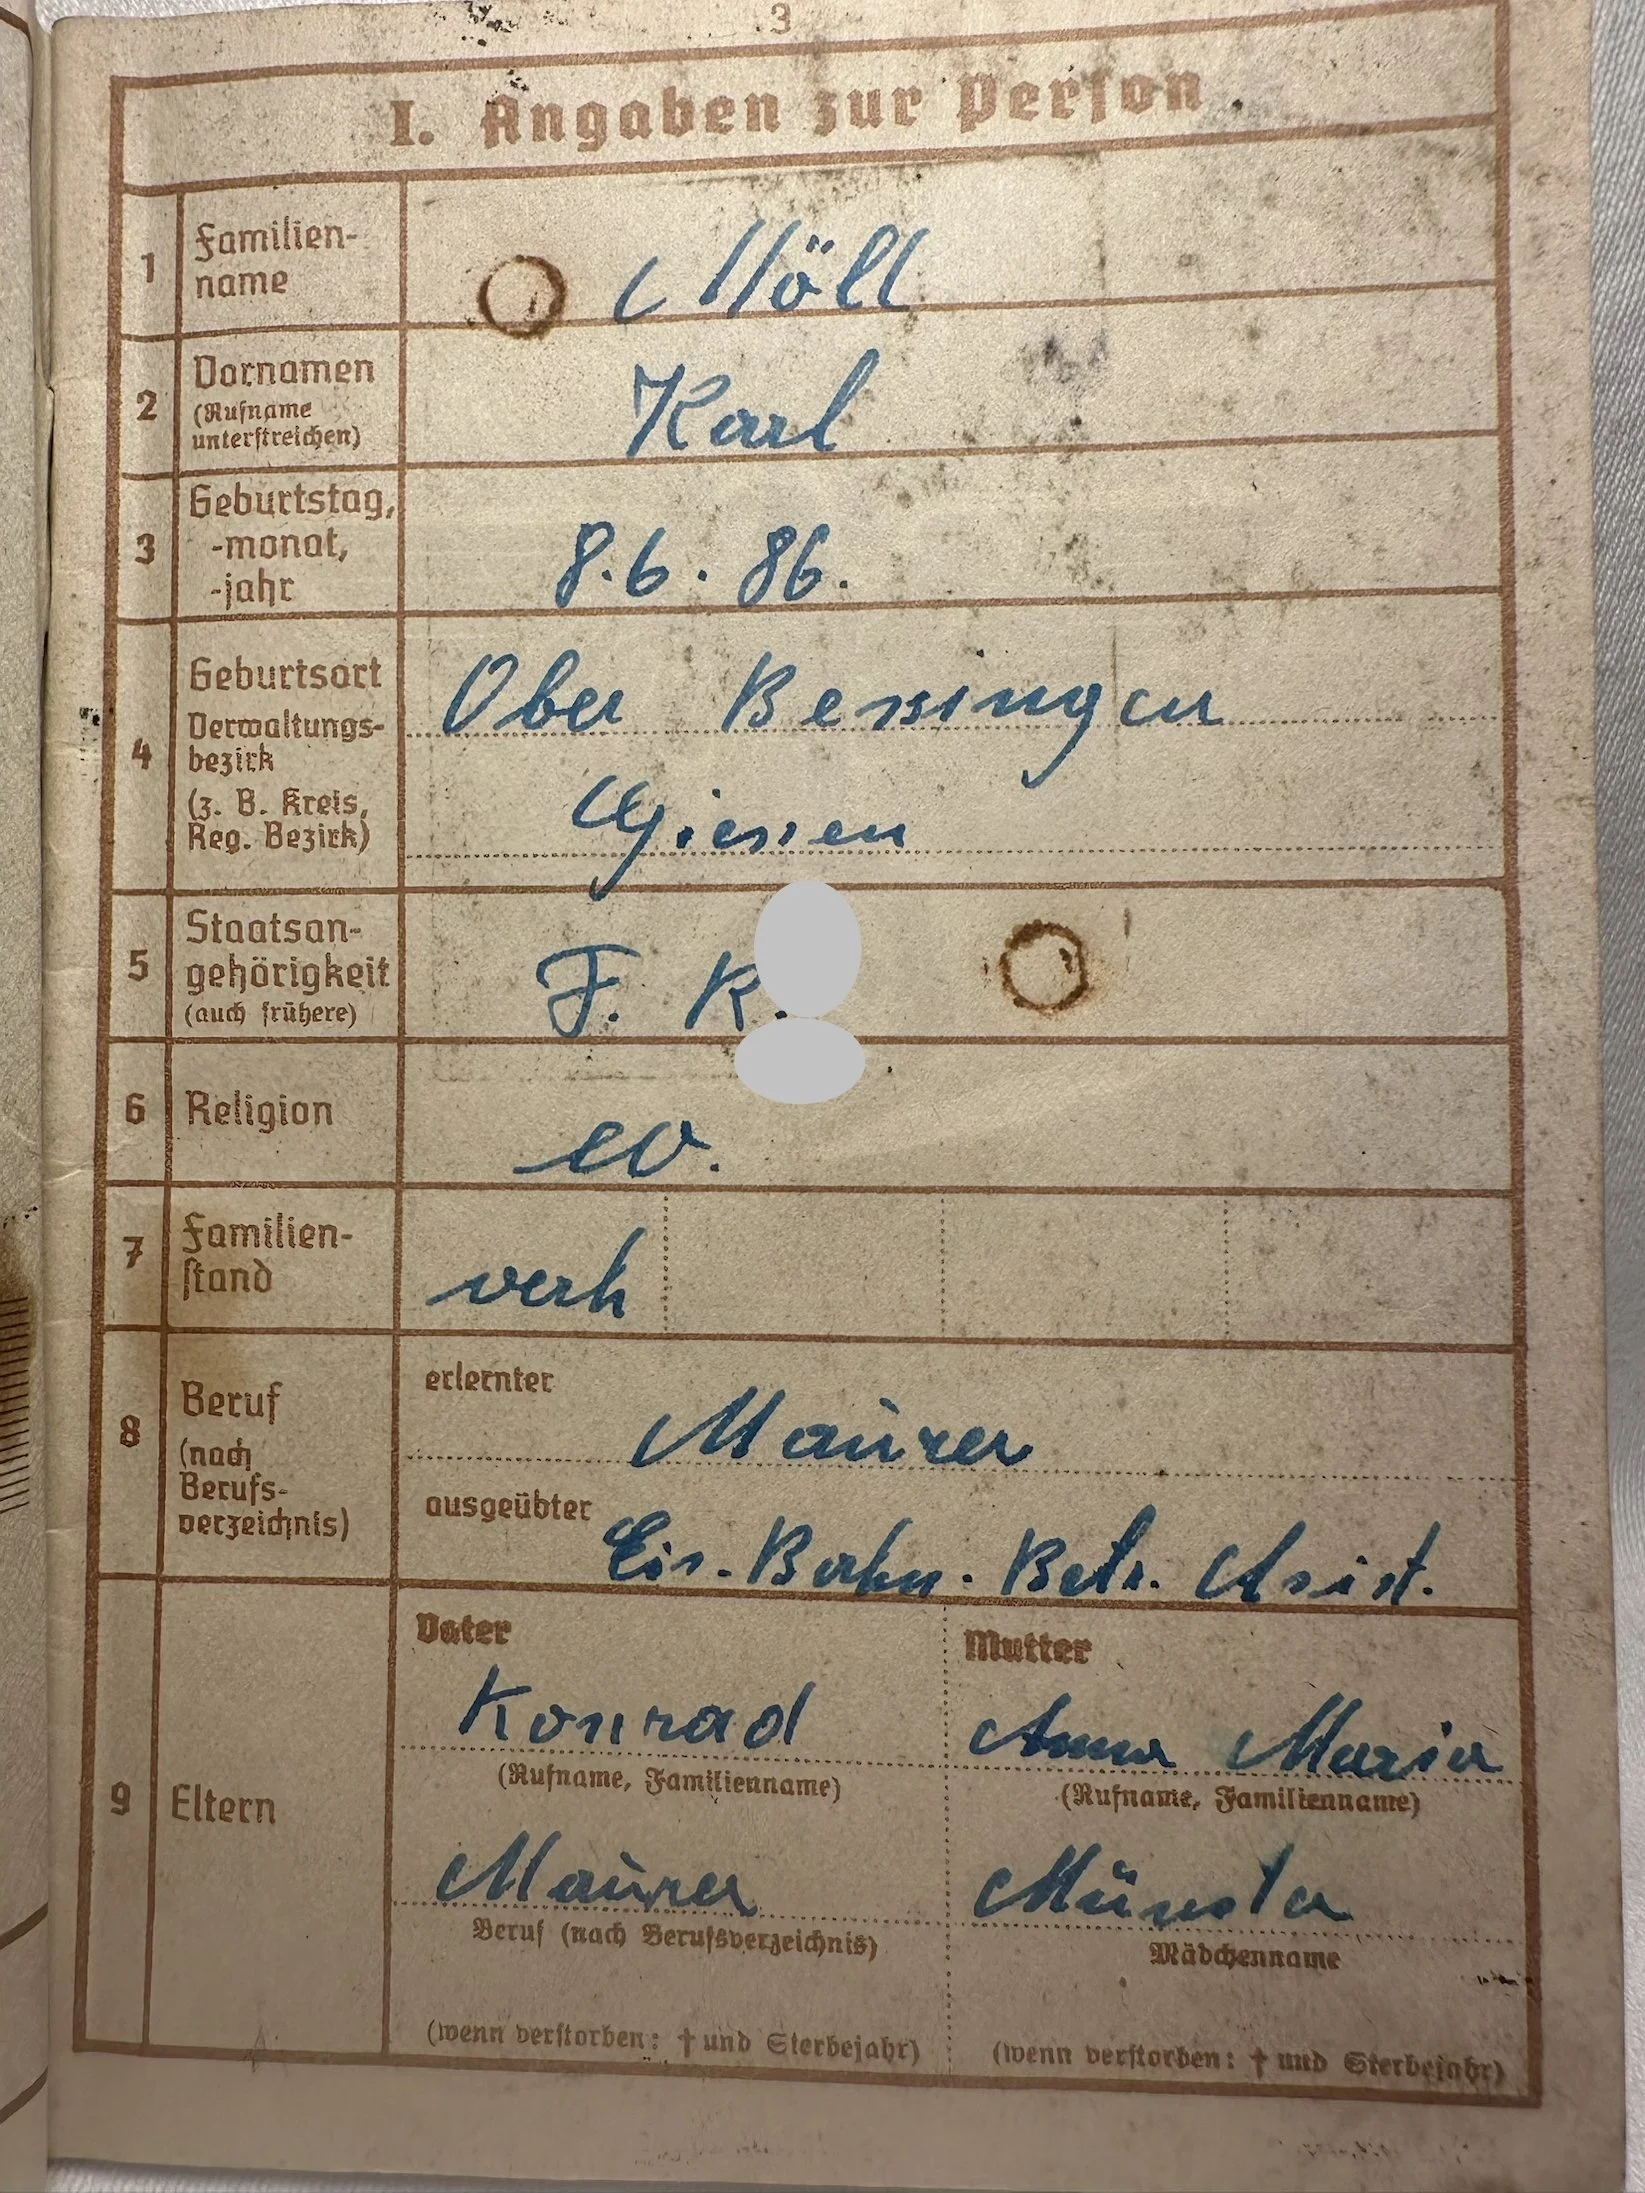 3
I. Angaben zur Person
1 Familien-
name
Möll
2 Vornamen
(Rufname
unterstreichen)
Karl
3 Geburtstag,
-monat,
-jahr
8.6.86.
4 Geburtsort
Verwaltungs-
bezirk
(z. B. Kreis,
Reg. Bezirk)
Ober Bessingen
Giessen
5 Staatsan-
gehörigkeit
(auch frühere)
F. R.
6 Religion
ev.
7 Familien-
stand
verh
8 Beruf
(nach
Berufs-
verzeichnis)
erlernter
Maurer
ausgeübter
Eis.-Bahn-Betr. Assist.
9 Eltern
Vater
Konrad
(Rufname, Familienname)
Maurer
Beruf (nach Berufsverzeichnis)
(wenn verstorben: † und Sterbejahr)
Mutter
Anna Maria
(Rufname, Familienname)
Münster
Mädchenname
(wenn verstorben: † und Sterbejahr)